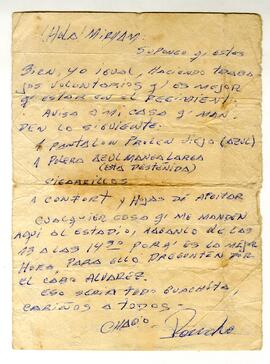 ¡HOLA! MIRIAM:
SUPONGO q' ESTES
BIEN, YO IGUAL, HACIENDO TRABA
JOS VOLUNTARIOS q' ES MEJOR
q' ESTAR EN EL
AVISA A MI CASA q' MAN
DEN LO SIGUIENTE:
1 PANTALON VIEJO (AZUL)
1 POLERA AZUL MANGA LARGA
(ESTA DESTEÑIDA)
CIGARRILLOS
1 CONFORT Y HOJAS DE AFEITAR
CUALQUIER COSA q' ME MANDEN
AQUI AL ESTADIO, HAGANLO DE LAS
13 A LAS 14³⁰ PORq' ES LA MEJOR
HORA, PARA ELLO PREGUNTEN POR
EL CABO ALVAREZ.
ESO SERIA TODO GUACHITA
CARIÑOS A TODOS -
CHAO.